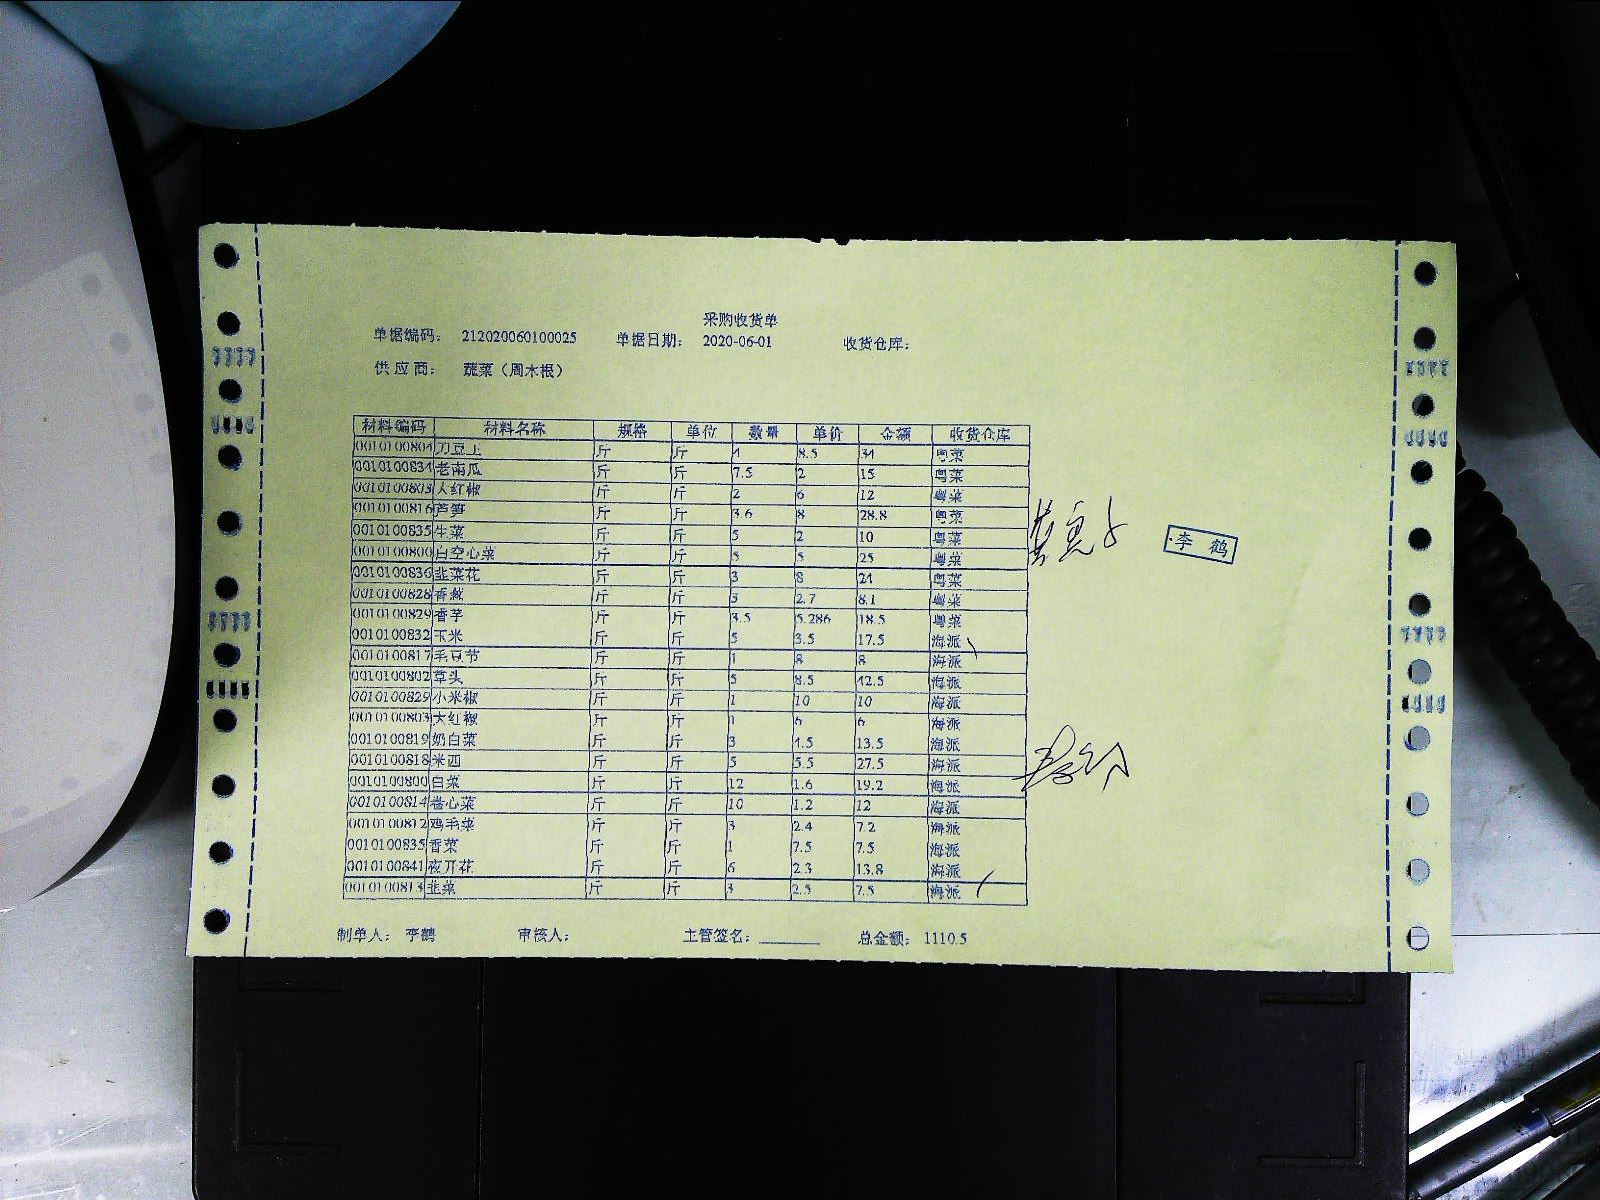 采购收货单
单据编码： 212020060100025 单据日期： 2020-06-01 收货仓库：
供应商： 蔬菜（周木根）
材料编码 材料名称 规格 单位 数量 单价 金额 收货仓库
0010100804 刀豆王 斤 斤 4 8.5 34 粤菜
0010100834 老南瓜 斤 斤 7.5 2 15 粤菜
0010100803 大红椒 斤 斤 2 6 12 粤菜
0010100816 芦笋 斤 斤 3.6 8 28.8 粤菜
0010100835 生菜 斤 斤 5 2 10 粤菜
0010100800 白空心菜 斤 斤 5 5 25 粤菜
0010100836 韭菜花 斤 斤 3 8 24 粤菜
0010100828 香葱 斤 斤 3 2.7 8.1 粤菜
0010100829 香芋 斤 斤 3.5 5.286 18.5 粤菜
0010100832 玉米 斤 斤 5 3.5 17.5 海派
0010100817 毛豆节 斤 斤 1 8 8 海派
0010100802 草头 斤 斤 5 8.5 42.5 海派
0010100829 小米椒 斤 斤 1 10 10 海派
0010100803 大红椒 斤 斤 1 6 6 海派
0010100819 奶白菜 斤 斤 3 4.5 13.5 海派
0010100818 米西 斤 斤 5 5.5 27.5 海派
0010100800 白菜 斤 斤 12 1.6 19.2 海派
0010100814 卷心菜 斤 斤 10 1.2 12 海派
0010100812 鸡毛菜 斤 斤 3 2.4 7.2 海派
0010100835 香菜 斤 斤 1 7.5 7.5 海派
0010100841 夜开花 斤 斤 6 2.3 13.8 海派
0010100813 韭菜 斤 斤 3 2.5 7.5 海派
李鹤
制单人： 李鹤 审核人： 主管签名：______ 总金额： 1110.5